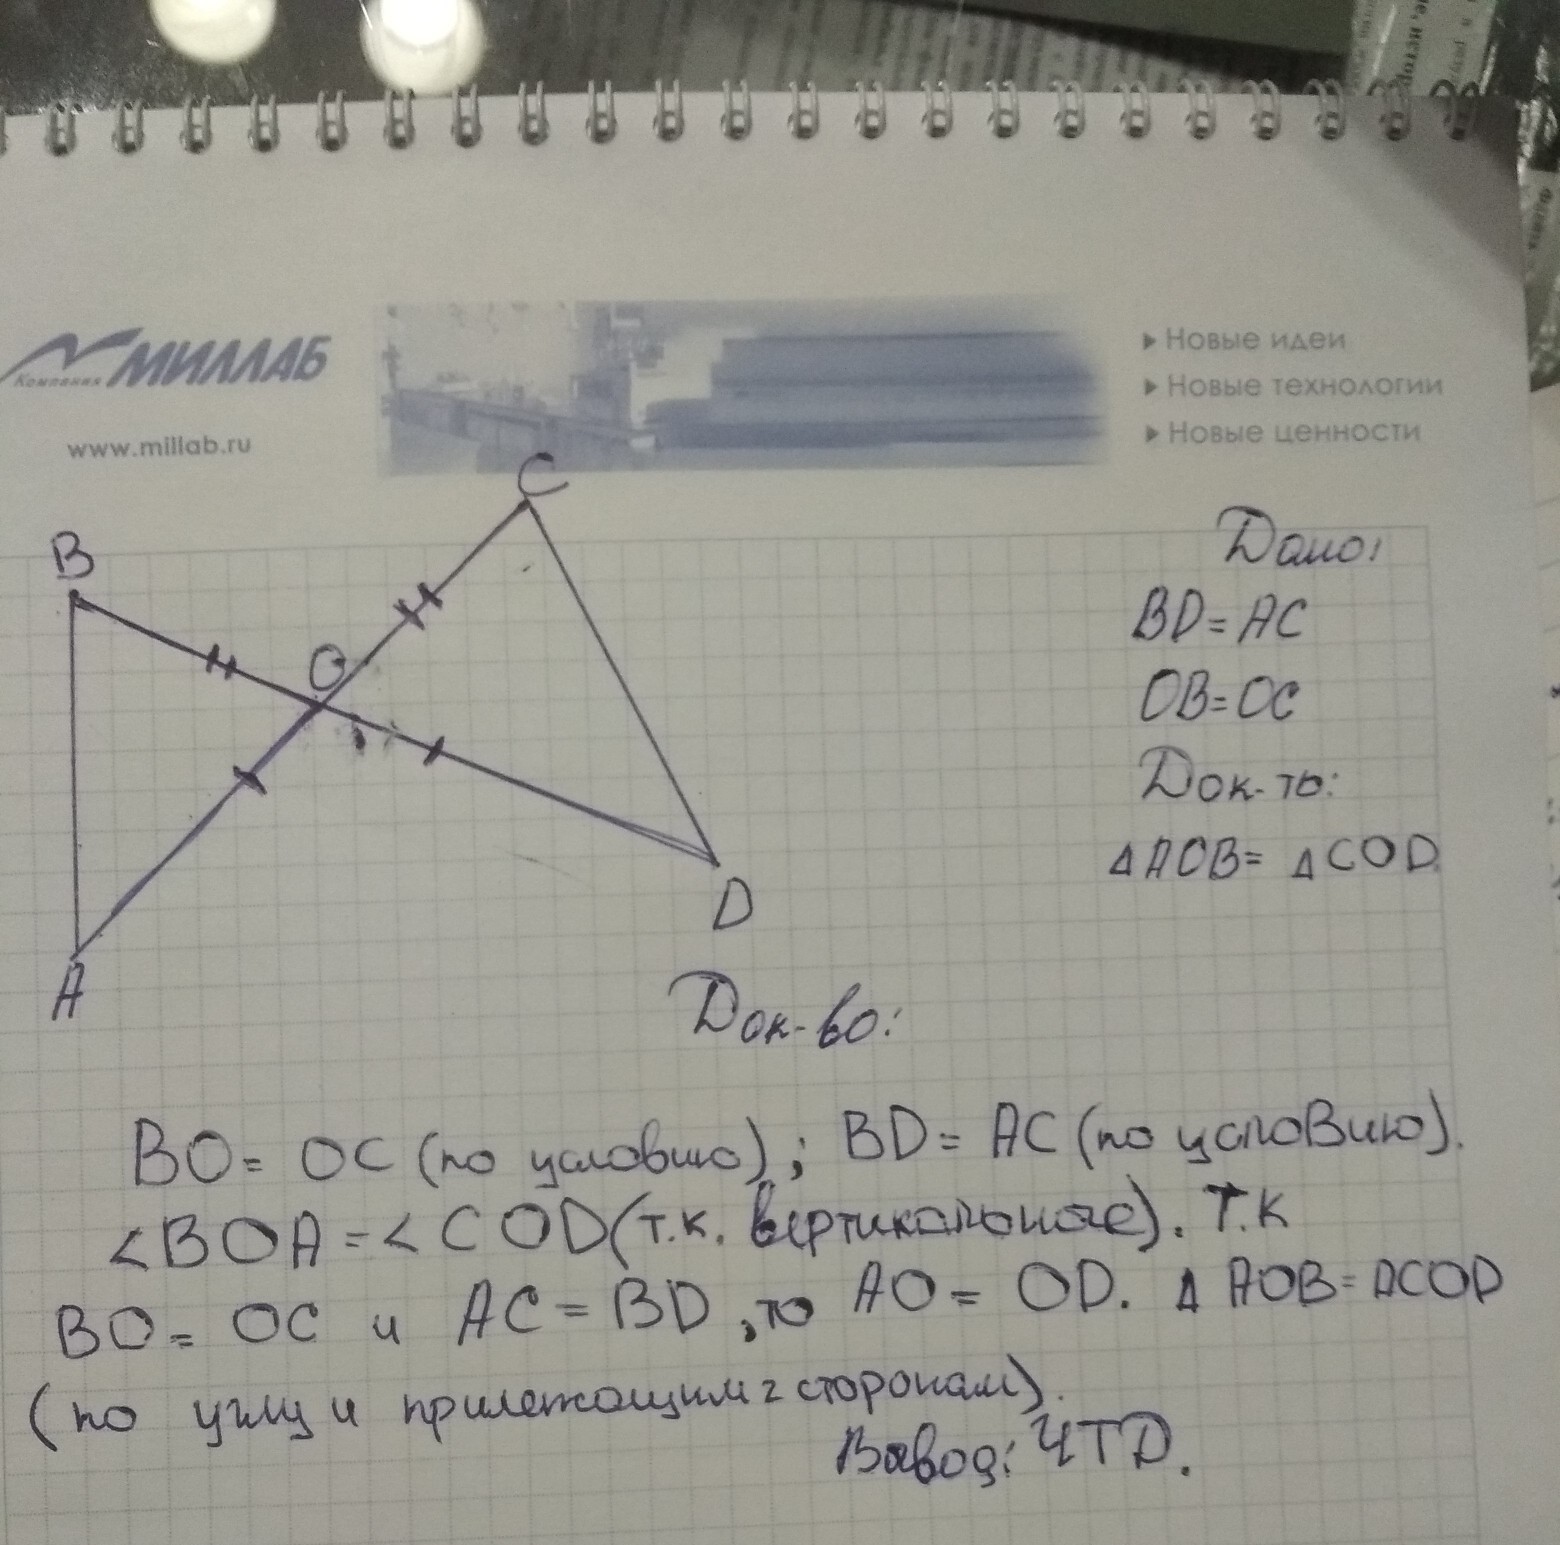 Компания МИЛЛАБ
www.millab.ru
▸ Новые идеи
▸ Новые технологии
▸ Новые ценности
C
B
O
D
A
Дано:
BD = AC
OB = OC
Док-ть:
△AOB = △COD
Док-во:
BO = OC (по условию); BD = AC (по условию).
∠BOA = ∠COD (т.к. вертикальные). Т.к
BO = OC и AC = BD, то AO = OD. △AOB = △COD
(по углу и прилежащим 2 сторонам).
Вывод: ЧТД.